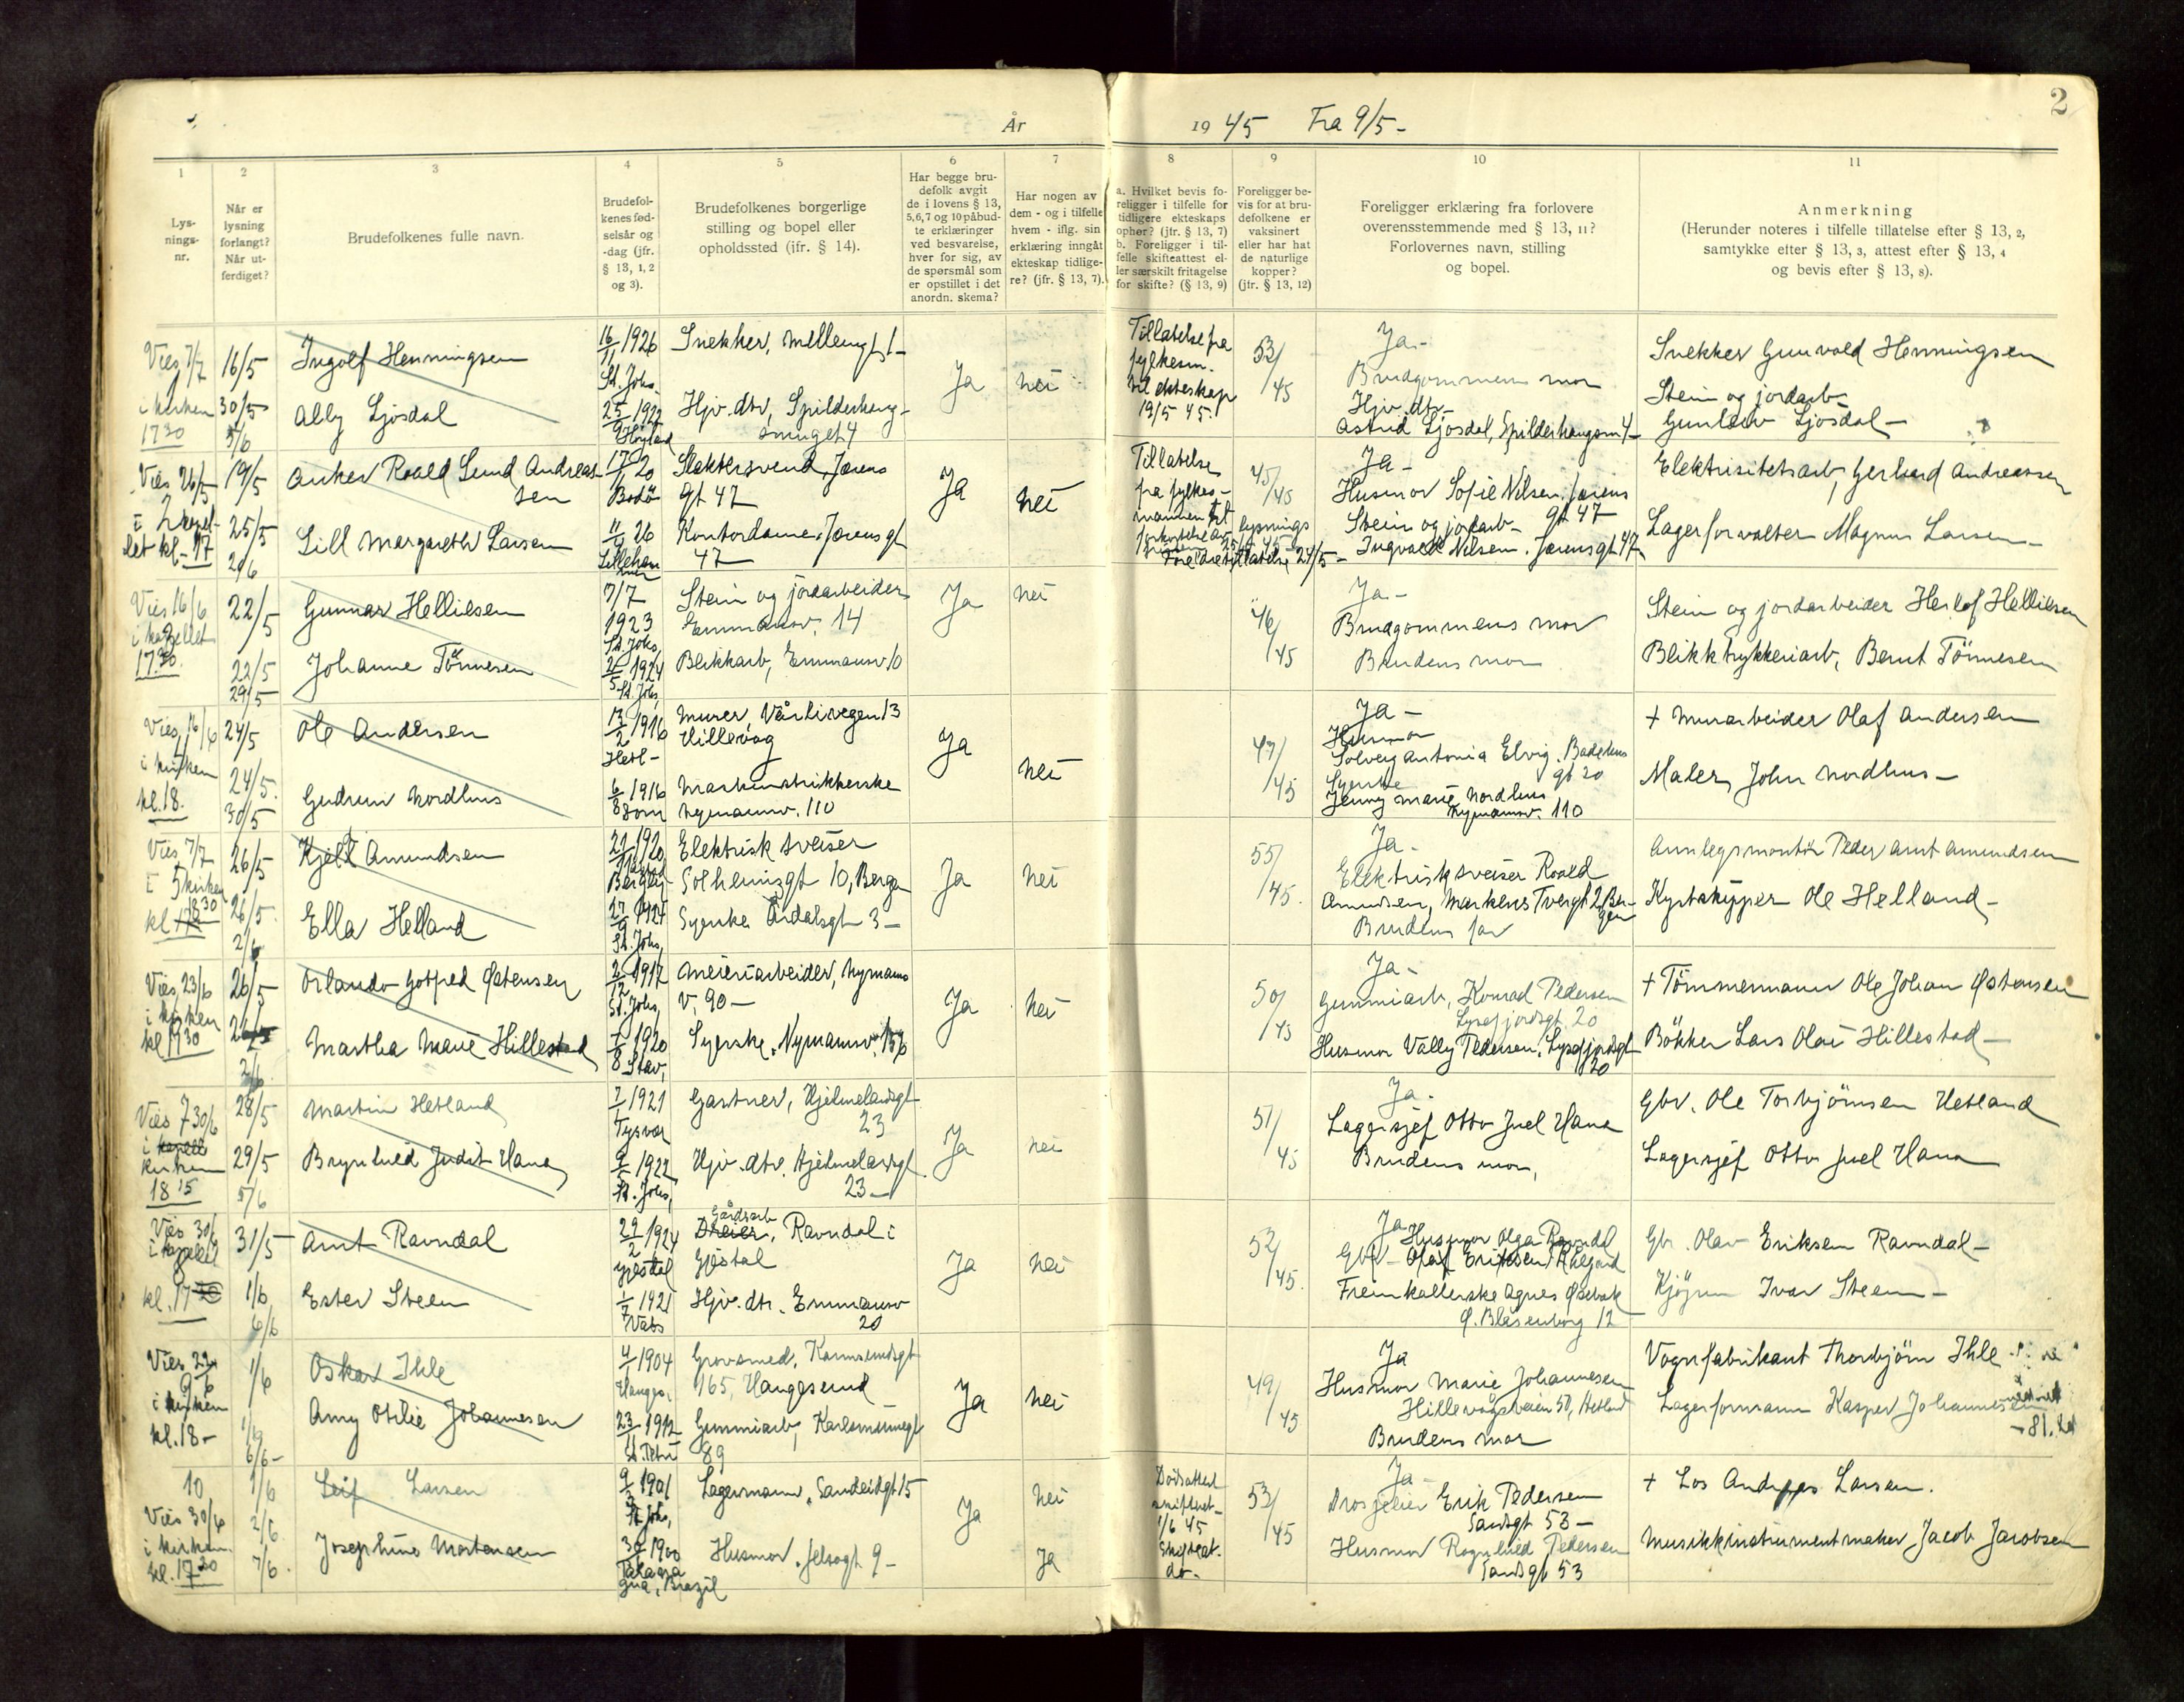 2
År
19 45 Fra 9/5-
1
Lys-
nings-
nr.
2
Når er
lysning
forlangt?
Når ut-
ferdiget?
3
Brudefolkenes fulle navn.
4
Brudefol-
kenes fød-
selsår og
-dag (jfr.
§ 13, 1, 2
og 3).
5
Brudefolkenes borgerlige
stilling og bopel eller
opholdssted (jfr. § 14).
6
Har begge bru-
defolk avgit
de i lovens § 13,
5,6,7 og 10 påbud-
te erklæringer
ved besvarelse,
hver for sig, av
de spørsmål som
er opstillet i det
anordn. skema?
7
Har nogen av
dem - og i tilfelle
hvem - iflg. sin
erklæring inngåt
ekteskap tidlige-
re? (jfr. § 13, 7).
8
a. Hvilket bevis fo-
religger i tilfelle for
tidligere ekteskaps
ophør? (jfr. § 13, 7)
b. Foreligger i til-
felle skifteattest el-
ler særskilt fritagelse
for skifte? (§ 13, 9)
9
Foreligger be-
vis for at bru-
defolkene er
vaksinert
eller har hat
de naturlige
kopper?
(jfr. § 13, 12)
10
Foreligger erklæring fra forlovere
overensstemmende med § 13, 11?
Forlovernes navn, stilling
og bopel.
11
Anmerkning
(Herunder noteres i tilfelle tillatelse efter § 13, 2,
samtykke efter § 13, 3, attest efter § 13, 4
og bevis efter § 13, 8).
Vies 7/7
i kirken
17 30
16/5
30/5
5/6
Ingolf Henningsen
Ally Ljosdal
16/11 1926
St. Johs.
25/9 1922
Høyland
Snekker,
Hjv. dtr, Spilderhaug-
smuget 4
Ja
nei
Tillatelse fra
fylkesm.
til ekteskap
19/5 45.
53/45
Ja-
Brudgommens mor
Hjv. dtr-
Astrid Ljosdal, Spilderhaugsm 4-
Snekker Gunvald Henningsen
Stein og jordarb
Gunleiv Ljosdal-
Vies 26/5
i kapel-
let kl- 17
19/5
25/5
2/6
Anker Roald Lund Andreas-
sen
Lill Margarethe Larsen
17/1 20
Bodö
11/9 26
Lilleham
mer
Slaktersvend, Jærens
gt 47
Kontordame. Jærensgt
47-
Ja
nei
Tillatelse
fra fylkes-
mannen til
45/45
Ja-
Husmor Sofie Nilsen. Jærens
gt 47
Stein og jordarb-
Ingvald Nilsen. Jærensgt 47
Elektrisitetsarb, Gerhard Andreassen
Lagerforvalter Magnus Larsen-
Vies 16/6
i kapellet
17 30.
22/5
22/5
29/5
Gunnar Helliesen
Johanne Tönnesen
7/7
1923
St. Johs,
2/5 1924
St. Johs,
Stein og jordarbeider
Emmausv. 14
Blikkarb, Emmausv 10
Ja
nei
46/45
Ja-
Brudgommens mor
Brudens mor
Stein og jordarbeider Herlof Helliesen
Blikktrykkeriarb, Bernt Tönnesen
Vies, 16/6
i kirken
kl. 18.
24/5
24/5.
30/5
Ole Andersen
Gudrun Nordhus
13/2 1916
Hetl-
6/8 1916
Murer, Vårlivegen 13
Hillevåg
Maskinstrikkerske
Nymannsv. 110
Ja
nei
47/45
Ja-
Husmor
Solveig Antonia Elvig. Badehus
gt 20
Syerske
Jenny Marie Nordhus
Nymannsv. 110
+ Murarbeider Olaf Andersen
Maler, John Nordhus-
Vies, 7/7
i kirken
kl 18 30
26/5
26/5.
2/6
Kjell Amundsen
Ella Helland
21/11 1920
Bergen
17/9 1924
St. Johs,
Elektrisk sveiser
Solheimsgt 10, Bergen
Syerske Årdalsgt 3-
Ja
nei
55/45.
Ja-
Elektrisksveiser Roald
Amundsen, Markens Tvergt 2 Ber-
gen
Brudens far
Annlegsmontör Peder Arnt Amundsen
Kystskipper Ole Helland-
Vies, 23/6
i kirken
kl 17 30
26/5
26/5
2/6
Orlando Gotfred Østensen
Martha Marie Hillestad
2/12 1917
St. Johs,
1/8 1920
Stav,
Meieriarbeider, Nymanns
v. 90-
Syerske. Nymannsv. 156
Ja
nei
50/45
Ja-
Gummiarb, Konrad Pedersen
Lysefjordsgt. 20
Husmor Vally Pedersen. Lysefjordsgt
20
+ Tömmermann Ole Johan Østensen
Bökker Lars Olai Hillestad-
Vies 30/6
i kapell
kirken
18 15
28/5
29/5
5/6
Martin Hetland
Brynhild Judit Hana
7/1 1921
Tysvær
1922
St. Johs,
Gartner, Hjelmelandsgt
23
Hjv. dtr. Hjelmelandsgt
23-
Ja
nei
51/45
Ja-
Lagersjef Otto Juel Hana
Brudens mor,
Gbr. Ole Torbjörnsen Hetland
Lagersjef Otto Juel Hana
Vies 30/6
i kapellet
kl. 17
31/5
1/6
6/6
Arnt Ravndal
Ester Steen
29/2 1924
Gjesdal
1/7 1921
Vats
Gårdsarb
Dreier, Ravndal i
Gjestal
Hjv. dtr. Emmausv
20
Ja
nei
52/45.
Ja
Husmor Olga Ravndal
Gbr- Olaf Eriksen Ålgård
Fremkallerske Agnes Østebøk
Ø. Blåsenborg 12-
Gbr. Olav Eriksen Ravndal-
Ivar Steen-
Vies 22/6
i kirken
kl. 18-
1/6
1/6
6/6-
Oskar Ihle
Amy Otilie Johannesen
4/1 1904
Hauges.
23/11 1912
St. Petri
Grovsmed, Karmsundsgt
165, Haugesund
Gummiarb, Karlsminnegt
89
Ja
nei
49/45
Ja
Husmor Marie Johannesen
Hillevågsveien 50, Hetland
Brudens mor
Vognfabrikant Thorbjörn Ihle
Lagerformann Kasper Johannesen
10
Vies 30/6
i kirken.
kl. 17 30
1/6
2/6
7/6.
Leif Larsen
Josephine Mortensen
1901
St Johs,
1900
gua, Brazil
Lagermann. Sandeidgt 15
Husmor. Jelsagt 9-
Ja
nei
Ja
Dødsattest
1/6 45
53/45
Ja-
Drosjeeier Erik Pedersen
Sandsgt 53-
Husmor Ragnhild Pedersen
Sandsgt 53
+ Los Andreas Larsen.
Musikkinstrumentmaker Jacob Jacobsen